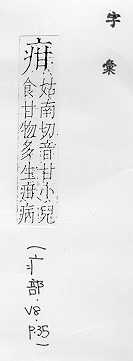 字彙
疳
姑南切音甘小兒
食甘物多生疳病
(疒部·V8·P35)